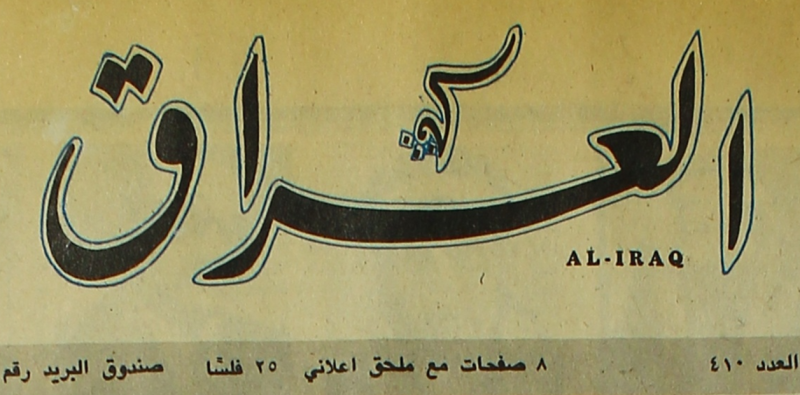 العراق
AL-IRAQ
العدد ٤١٠ ٨ صفحات مع ملحق اعلاني ٢٥ فلسًا صندوق البريد رقم